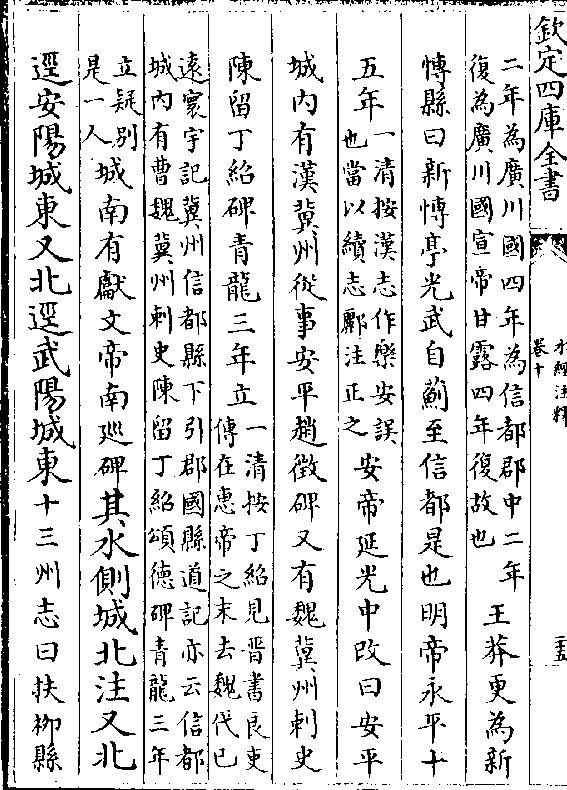 欽定四庫全書
水經注釋
卷十
二年為廣川國四年為信都郡中二年
復為廣川國宣帝甘露四年復故也
王莽更為新
愽縣曰新愽亭光武自薊至信都是也明帝永平十
五年
一清按漢志作樂安誤
也當以續志酈注正之
安帝延光中改曰安平
城內有漢冀州從事安平趙徵碑又有魏冀州刺史
陳留丁紹碑青龍三年立
一清按丁紹見晉書良吏
傳在惠帝之末去魏代已
遠寰宇記冀州信都縣下引郡國縣道記亦云信都
城內有曹魏冀州刺史陳留丁紹頌德碑青龍三年
立疑別
是一人
城南有獻文帝南廵碑其水側城北注又北
逕安陽城東又北逕武陽城東十三州志曰扶柳縣